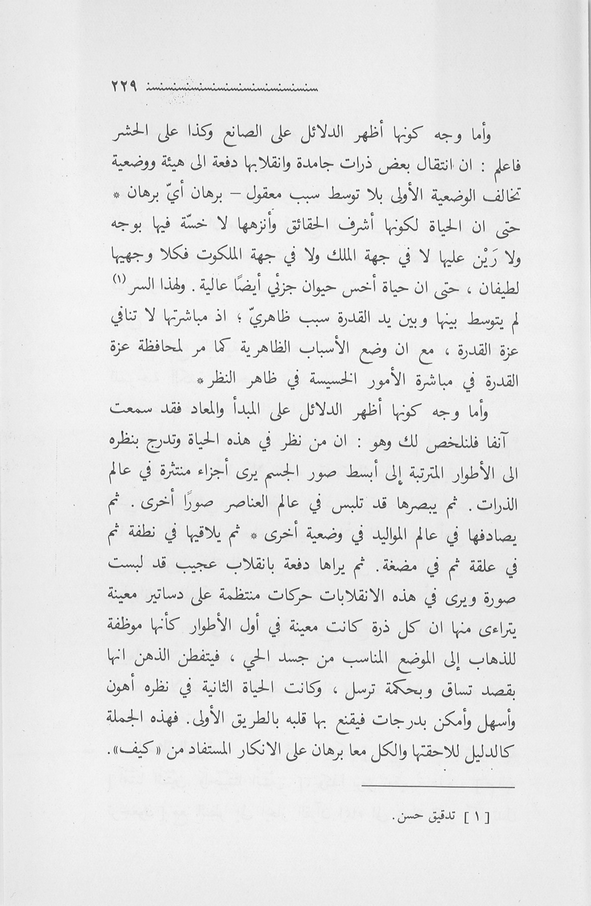 ٢٢٩
وأما وجه كونها أظهر الدلائل على الصانع وكذا على الحشر
فاعلم : ان انتقال بعض ذرات جامدة وانقلابها دفعة الى هيئة ووضعية
تخالف الوضعية الأولى بلا توسط سبب معقول – برهان أيّ برهان *
حتى ان الحياة لكونها أشرف الحقائق وأنزهها لا خسّة فيها بوجه
ولا رَيْن عليها لا في جهة الملك ولا في جهة الملكوت فكلا وجهيها
لطيفان ، حتى ان حياة أخس حيوان جزئي أيضًا عالية . ولهذا السر (١)
لم يتوسط بينها وبين يد القدرة سبب ظاهريّ ؛ اذ مباشرتها لا تنافي
عزة القدرة ، مع ان وضع الأسباب الظاهرية كما مر لمحافظة عزة
القدرة في مباشرة الأمور الخسيسة في ظاهر النظر *
وأما وجه كونها أظهر الدلائل على المبدأ والمعاد فقد سمعت
آنفا فلنلخص لك وهو : ان من نظر في هذه الحياة وتدرج بنظره
الى الأطوار المترتبة إلى أبسط صور الجسم يرى أجزاء منتثرة في عالم
الذرات . ثم يبصرها قد تلبس في عالم العناصر صورًا أخرى . ثم
يصادفها في عالم المواليد في وضعية أخرى * ثم يلاقيها في نطفة ثم
في علقة ثم في مضغة . ثم يراها دفعة بانقلاب عجيب قد لبست
صورة ويرى في هذه الانقلابات حركات منتظمة على دساتير معينة
يتراءى منها ان كل ذرة كانت معينة في أول الأطوار كأنها موظفة
للذهاب إلى الموضع المناسب من جسد الحي ، فيتفطن الذهن انها
بقصد تساق وبحكمة ترسل ، وكانت الحياة الثانية في نظره أهون
وأسهل وأمكن بدرجات فيقنع بها قلبه بالطريق الأولى . فهذه الجملة
كالدليل للاحقتها والكل معا برهان على الانكار المستفاد من «كيف» .
[ ١ ] تدقيق حسن .